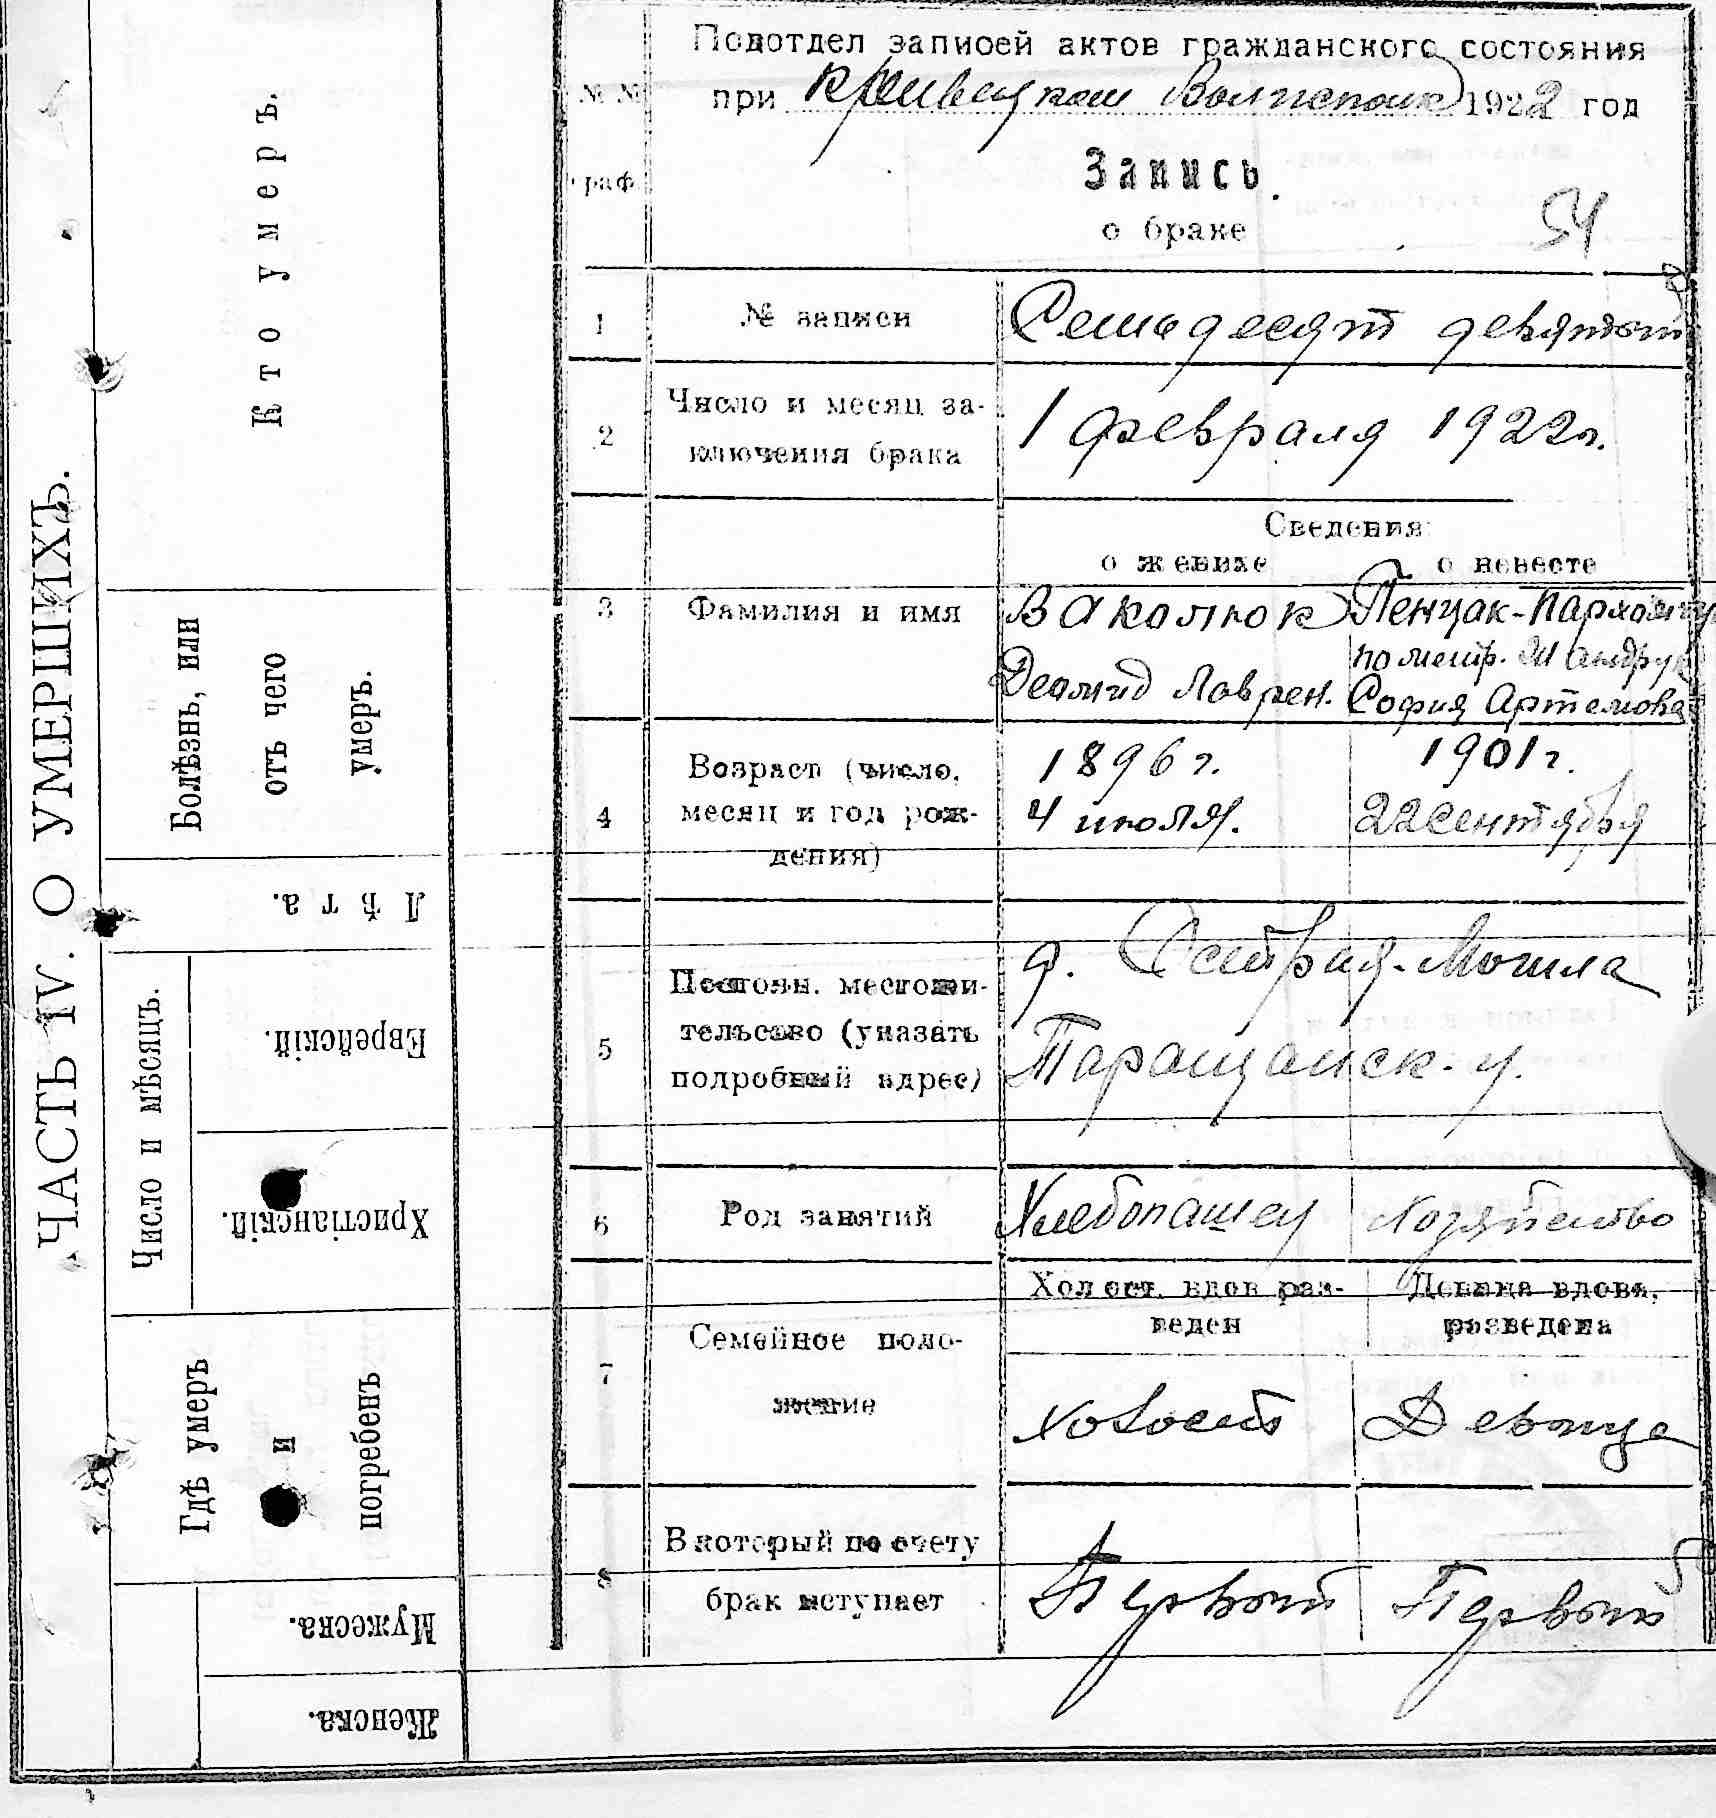 ЧАСТЬ IV. О УМЕРШИХЪ.
Кто умеръ.
Болѣзнь, или
отъ чего
умеръ.
Лѣта.
Число и мѣсяцъ.
Еврейскій.
Христіанскій.
Гдѣ умеръ
и
погребенъ
Мужеска.
Женска.
№ №
граф
Подотдел записей актов гражданского состояния
при Кривецком Волисполк 1922 год
Запись
о браке
54
1 № записи Семьдесят девятый
2 Число и месяц за-
ключения брака
1 февраля 1922г.
Сведения
о женихе о невесте
3 Фамилия и имя
Ваколюк
Деомид Лаврен.
Пенцак-Пархомчу
по метр. Шандрук
София Артемова
4 Возраст (число,
месяц и год рож-
дения)
1896 г.
4 июля.
1901г.
22 сентября
5 Постоян. местожи-
тельсво (указать
подробный адрес)
д. Острая-Могила
Таращанск. у.
6 Род занятий Хлебопашец Хозяйство
7 Семейное поло-
жение
Холост. вдов раз-
веден
Девица вдова,
разведена
холост Девица
8 В который по счету
брак вступает
Первый Первый